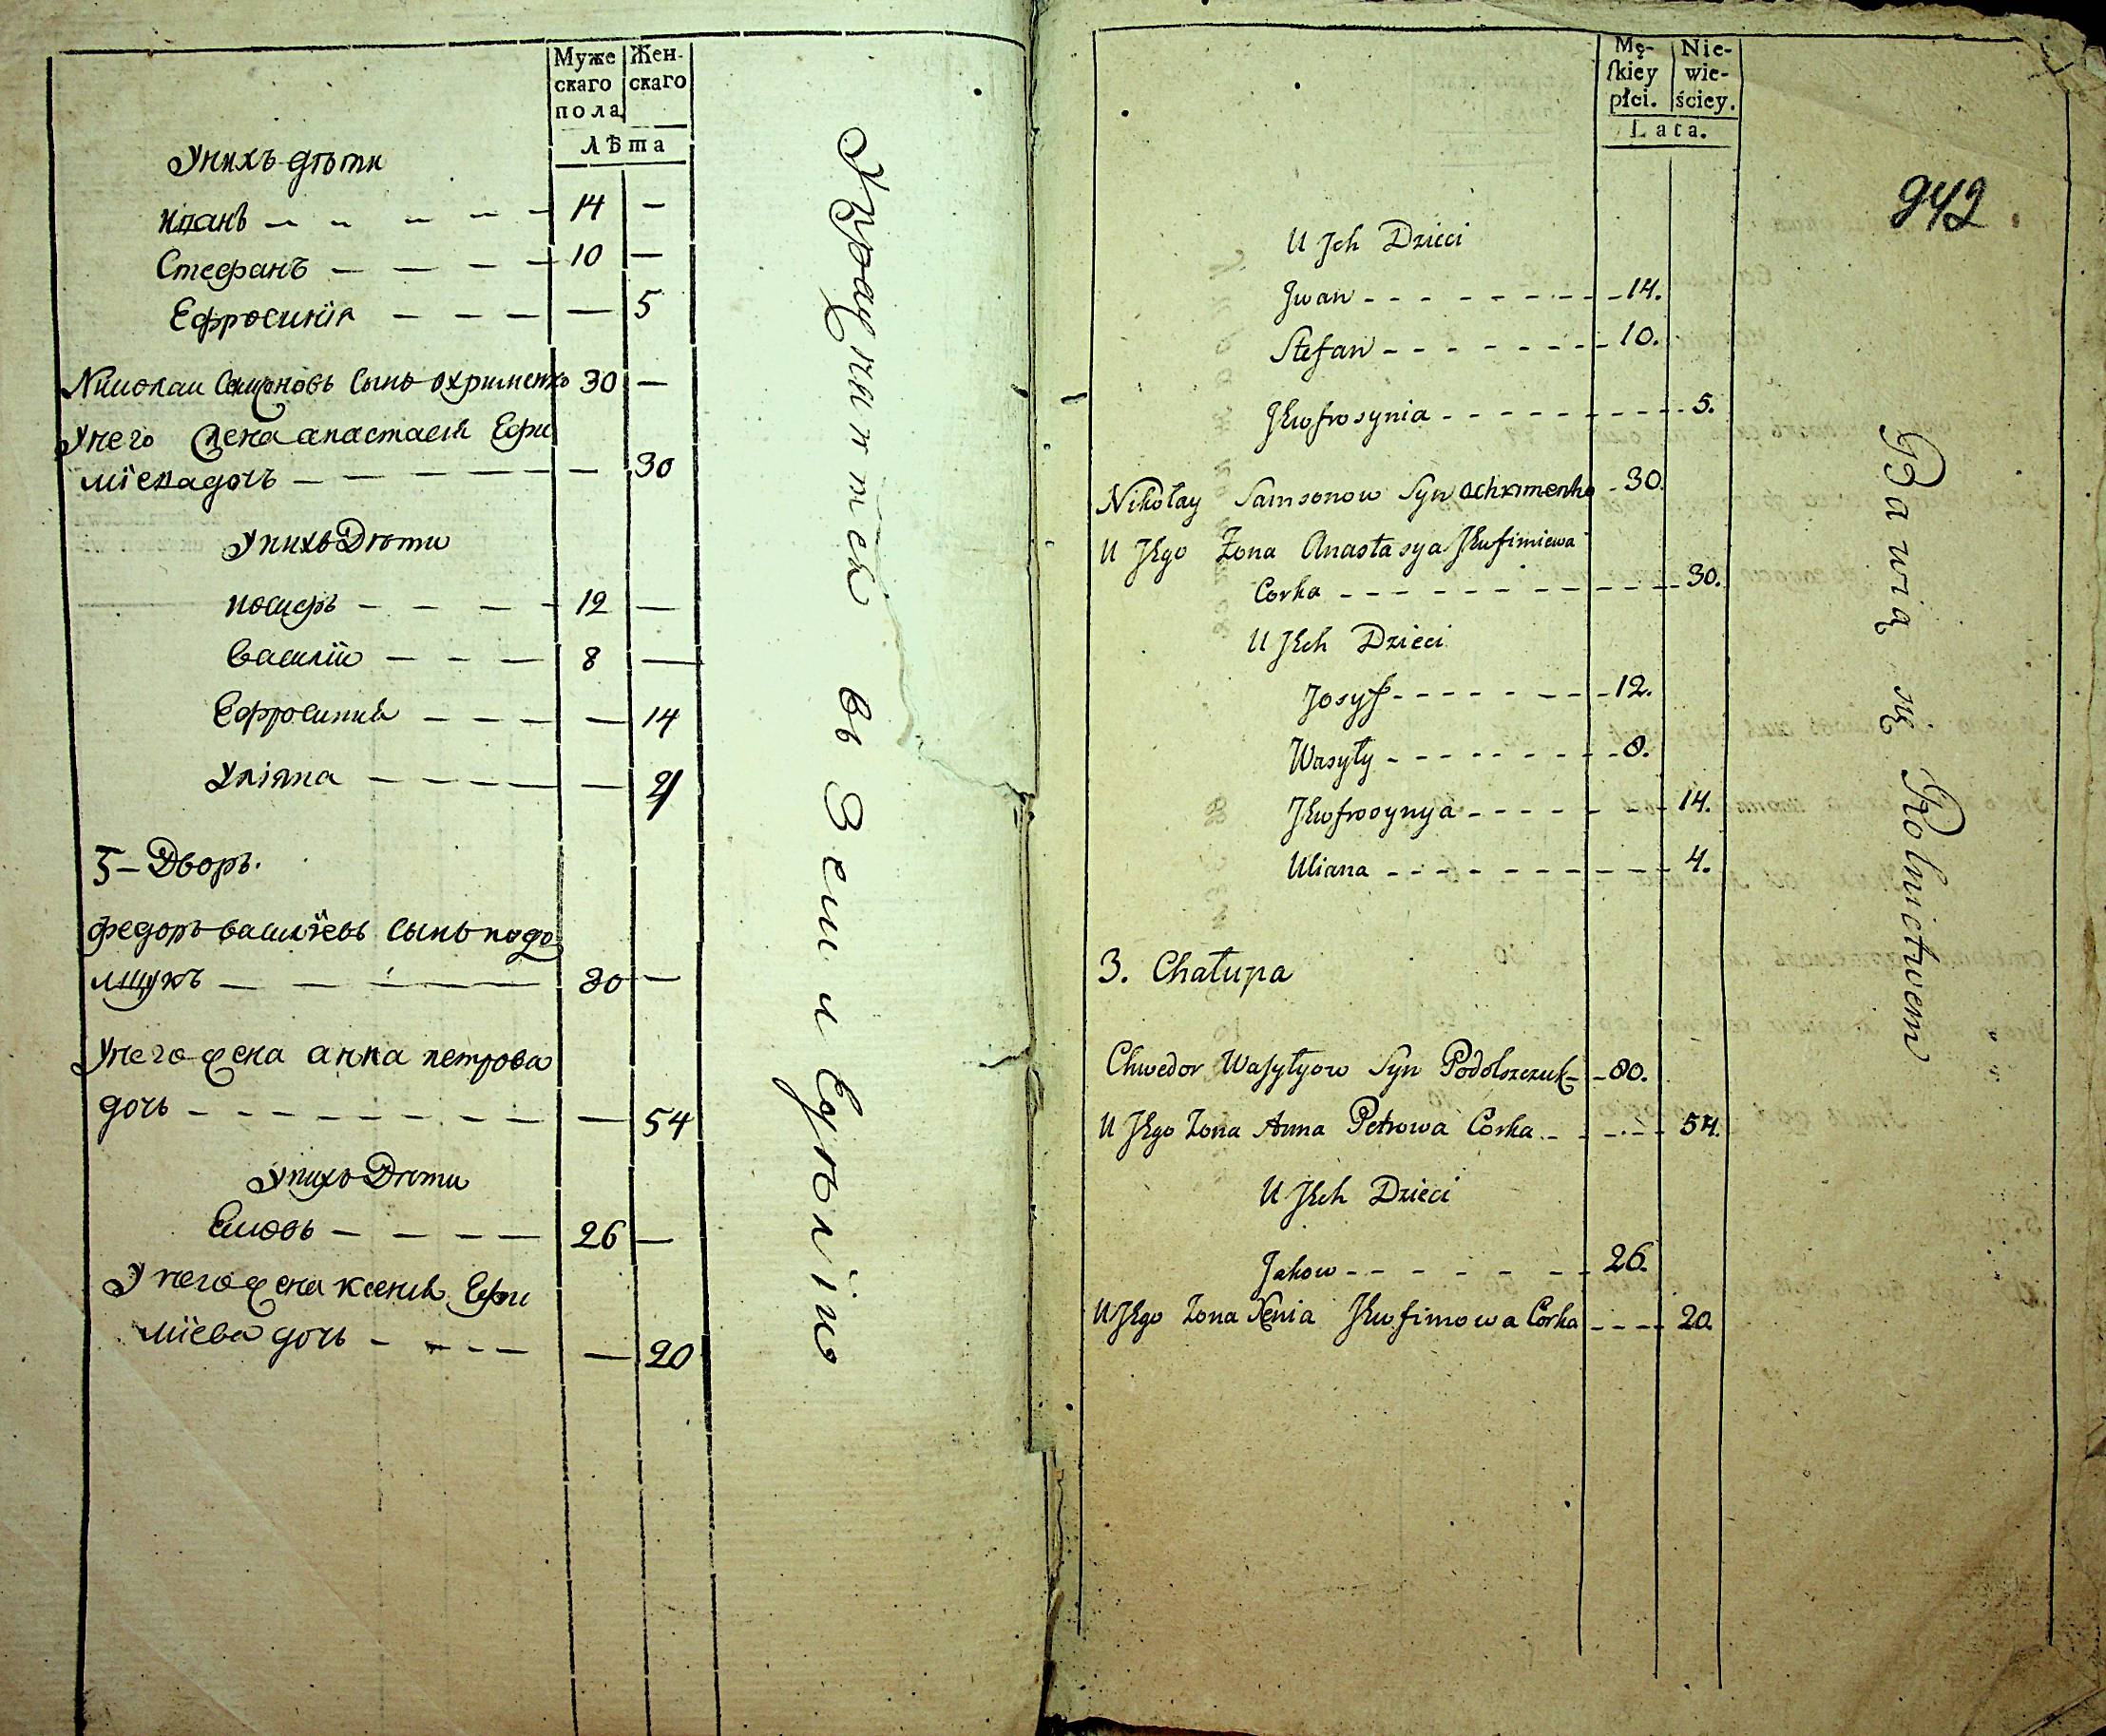 Муже
скаго
пола
Жен-
скаго
Лѣта
У нихъ дѣти
иванъ 14 —
Стефанъ 10 —
Ефросинія — 5
Николаи Самсоновъ сынъ охрименко 30 —
У него жена анастасия Ефи
міева дочь — 30
У нихъ Дѣти
иосифъ 12 —
Василій 8 —
Ефросиния — 14
Уліяна — 4
3 – Дворъ.
федоръ васильевъ сынъ подо
лщукъ 80 —
У него жена анна петрова
дочь — 54
У нихъ Дѣти
26 —
У него жена ксения Ефи
міева дочь — 20
въ Земледѣліи
Mę-
skiey
płci.
Nie-
wie-
ściey.
Lata.
942
U Jch Dzieci
Jwan 14.
Stefan 10.
Jewfrosynia 5.
Nikołay Samsonow Syn Ochrimenko 30.
U Jego Żona Anastasya Jewfimiewa
Corka 30.
U Jech Dzieci
Josyf 12.
Wasyły 8.
Jewfrosynya 14.
Uliana 4.
3. Chałupa
Chwedor Wasyłyow Syn Podolszczuk 80.
U Jego Zona Anna Petrowa Corka 54.
U Jech Dzieci
Jakow 26.
U Jego Zona Xenia Jewfimowa Corka 20.
Bawią się Rolnictwem